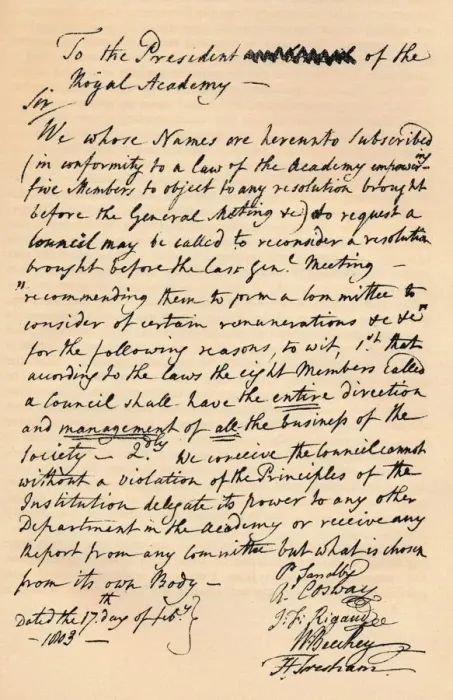 To the President of the
Royal Academy —
Sir
We whose Names are hereunto Subscribed
(in conformity to a law of the Academy empowering
five Members to object to any resolution brought
before the General Meeting &c) do request a
Council may be called to reconsider a resolution
brought before the last Genl. Meeting —
"recommending them to form a Committee to
consider of certain remunerations &c &c"
for the following reasons, to wit, 1st. that
according to the laws the eight Members called
a Council shall have the entire direction
and management of all the business of the
Society — 2dly We conceive the Council cannot
without a violation of the Principles of the
Institution delegate its power to any other
Department in the Academy or receive any
Report from any Committee but what is chosen
from its own Body —
P. Sandby
Rd. Cosway
J. F. Rigaud
Wm Beechey
H. Tresham
Dated the 17th. day of Feby.
— 1803 —